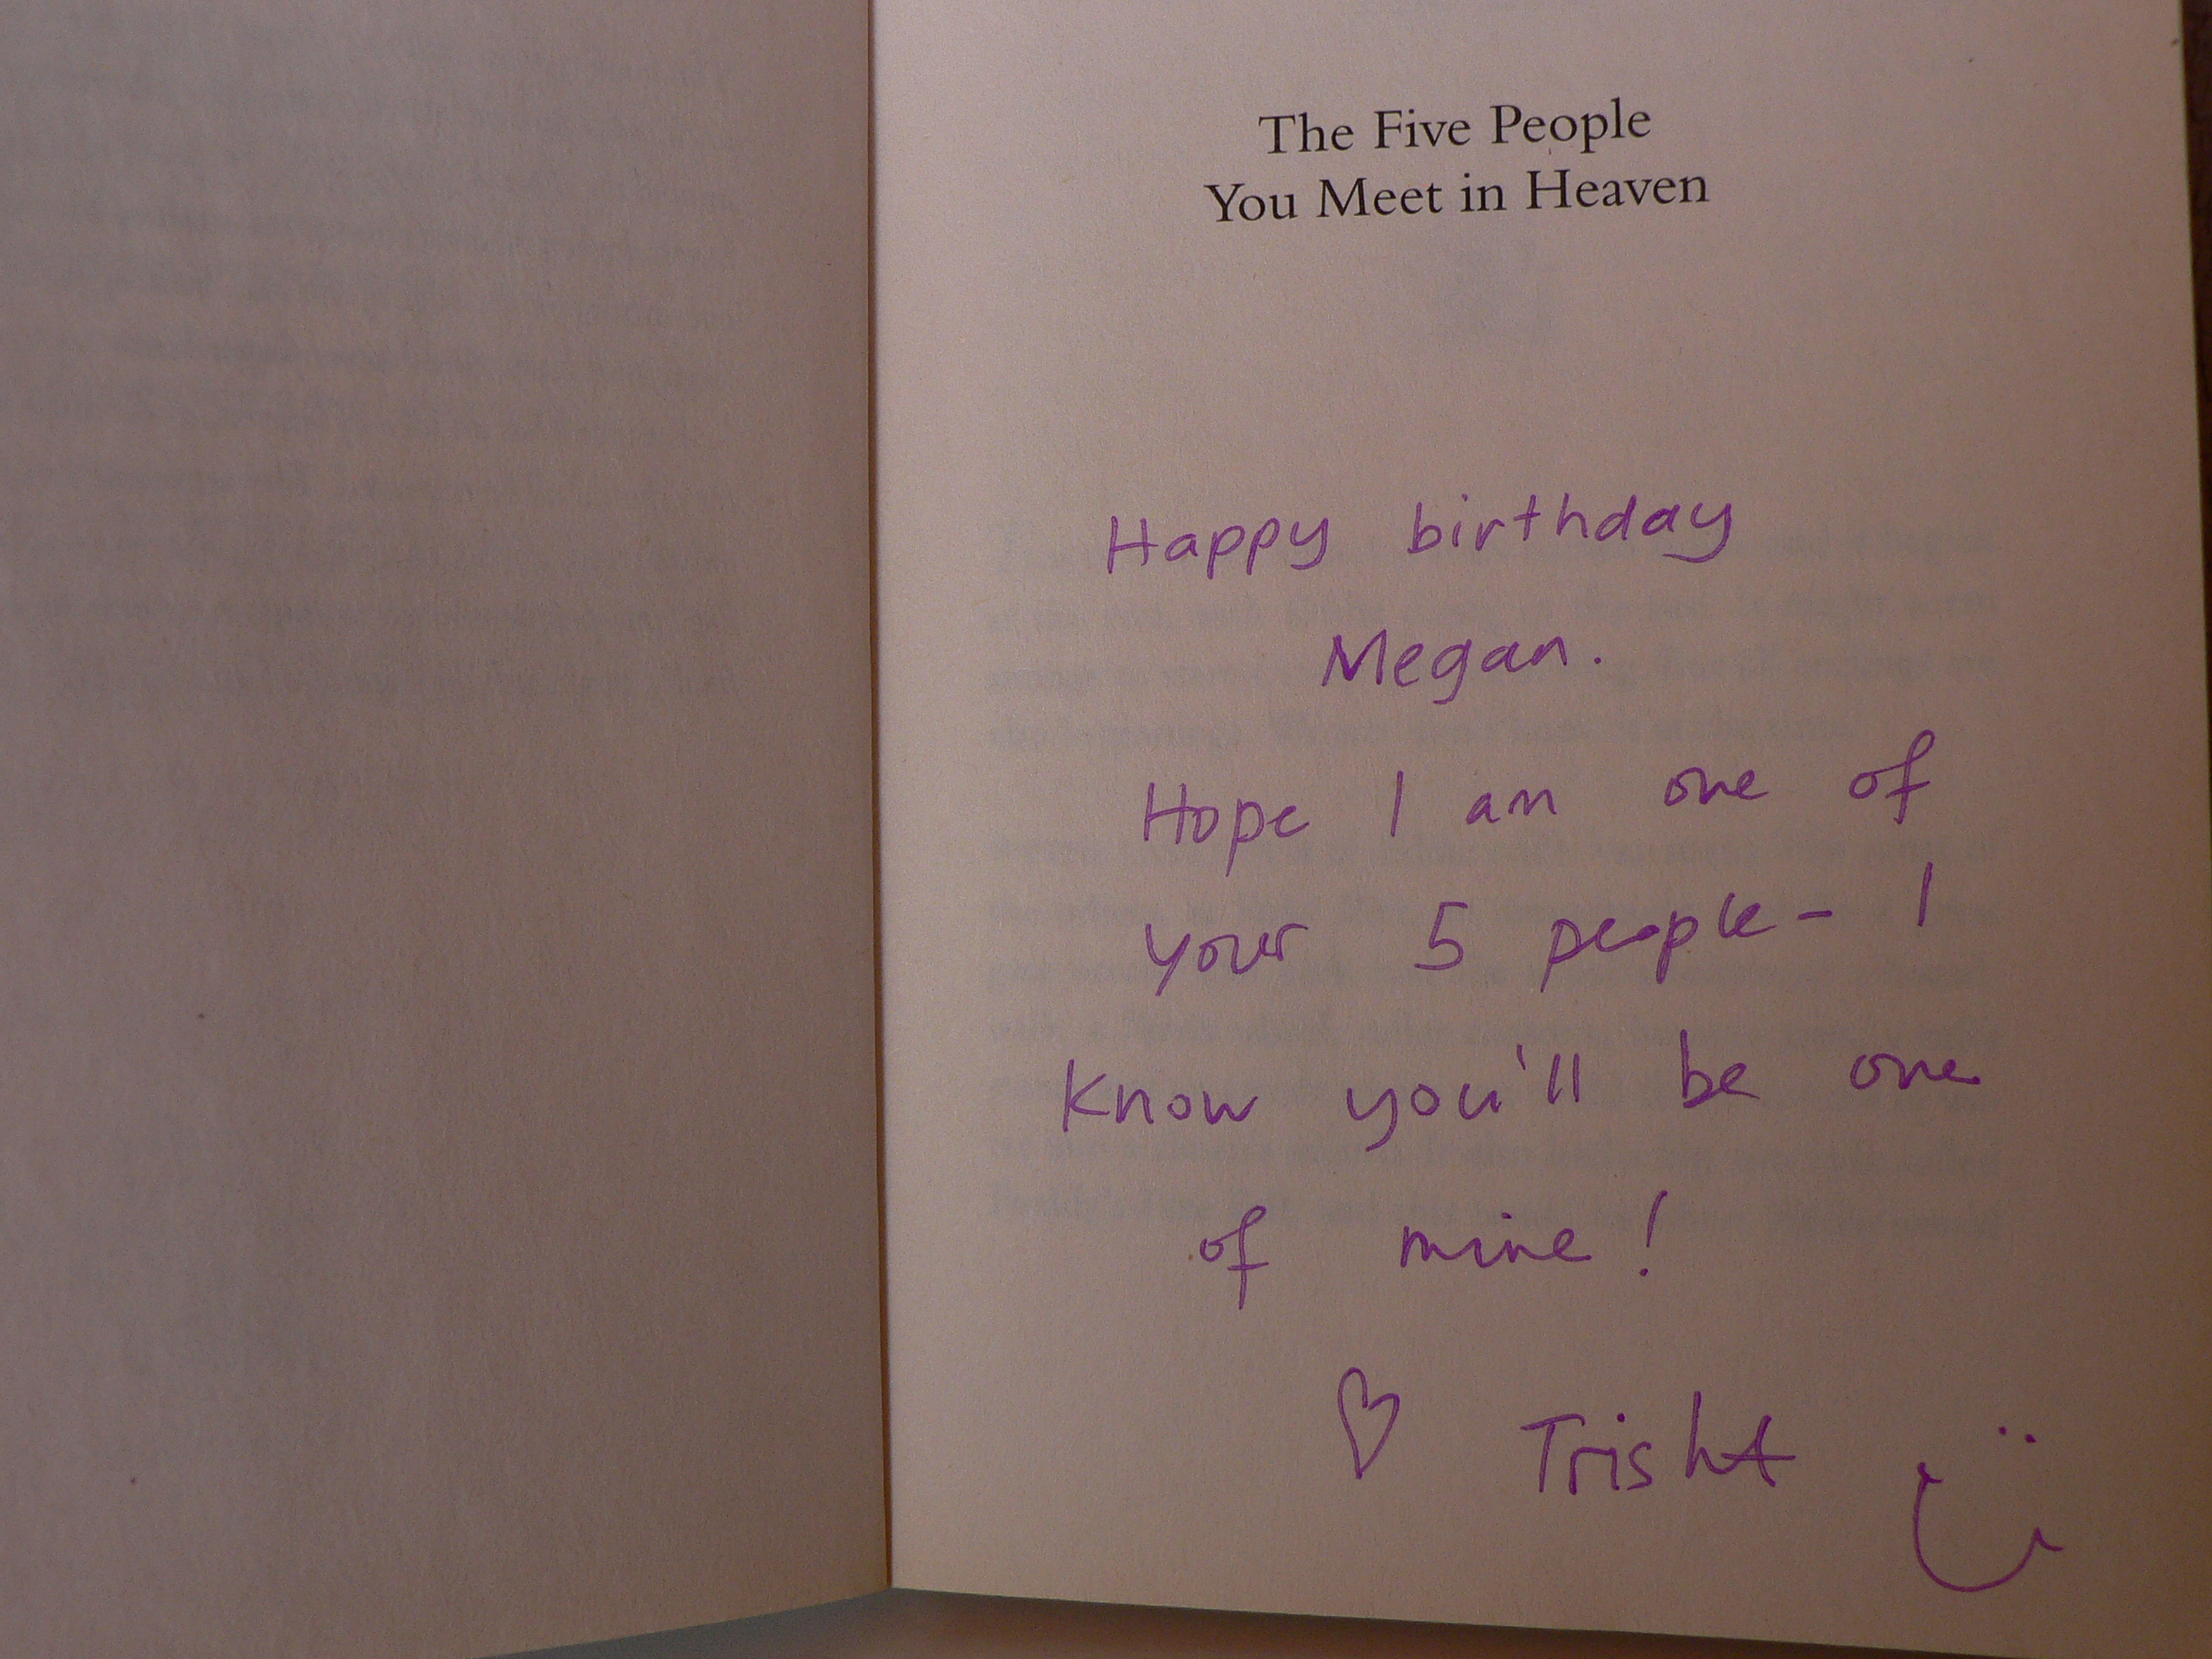 The Five People
You Meet in Heaven
Happy birthday
Megan.
Hope I am one of
your 5 people – I
know you'll be one
of mine!
♡ TrishA